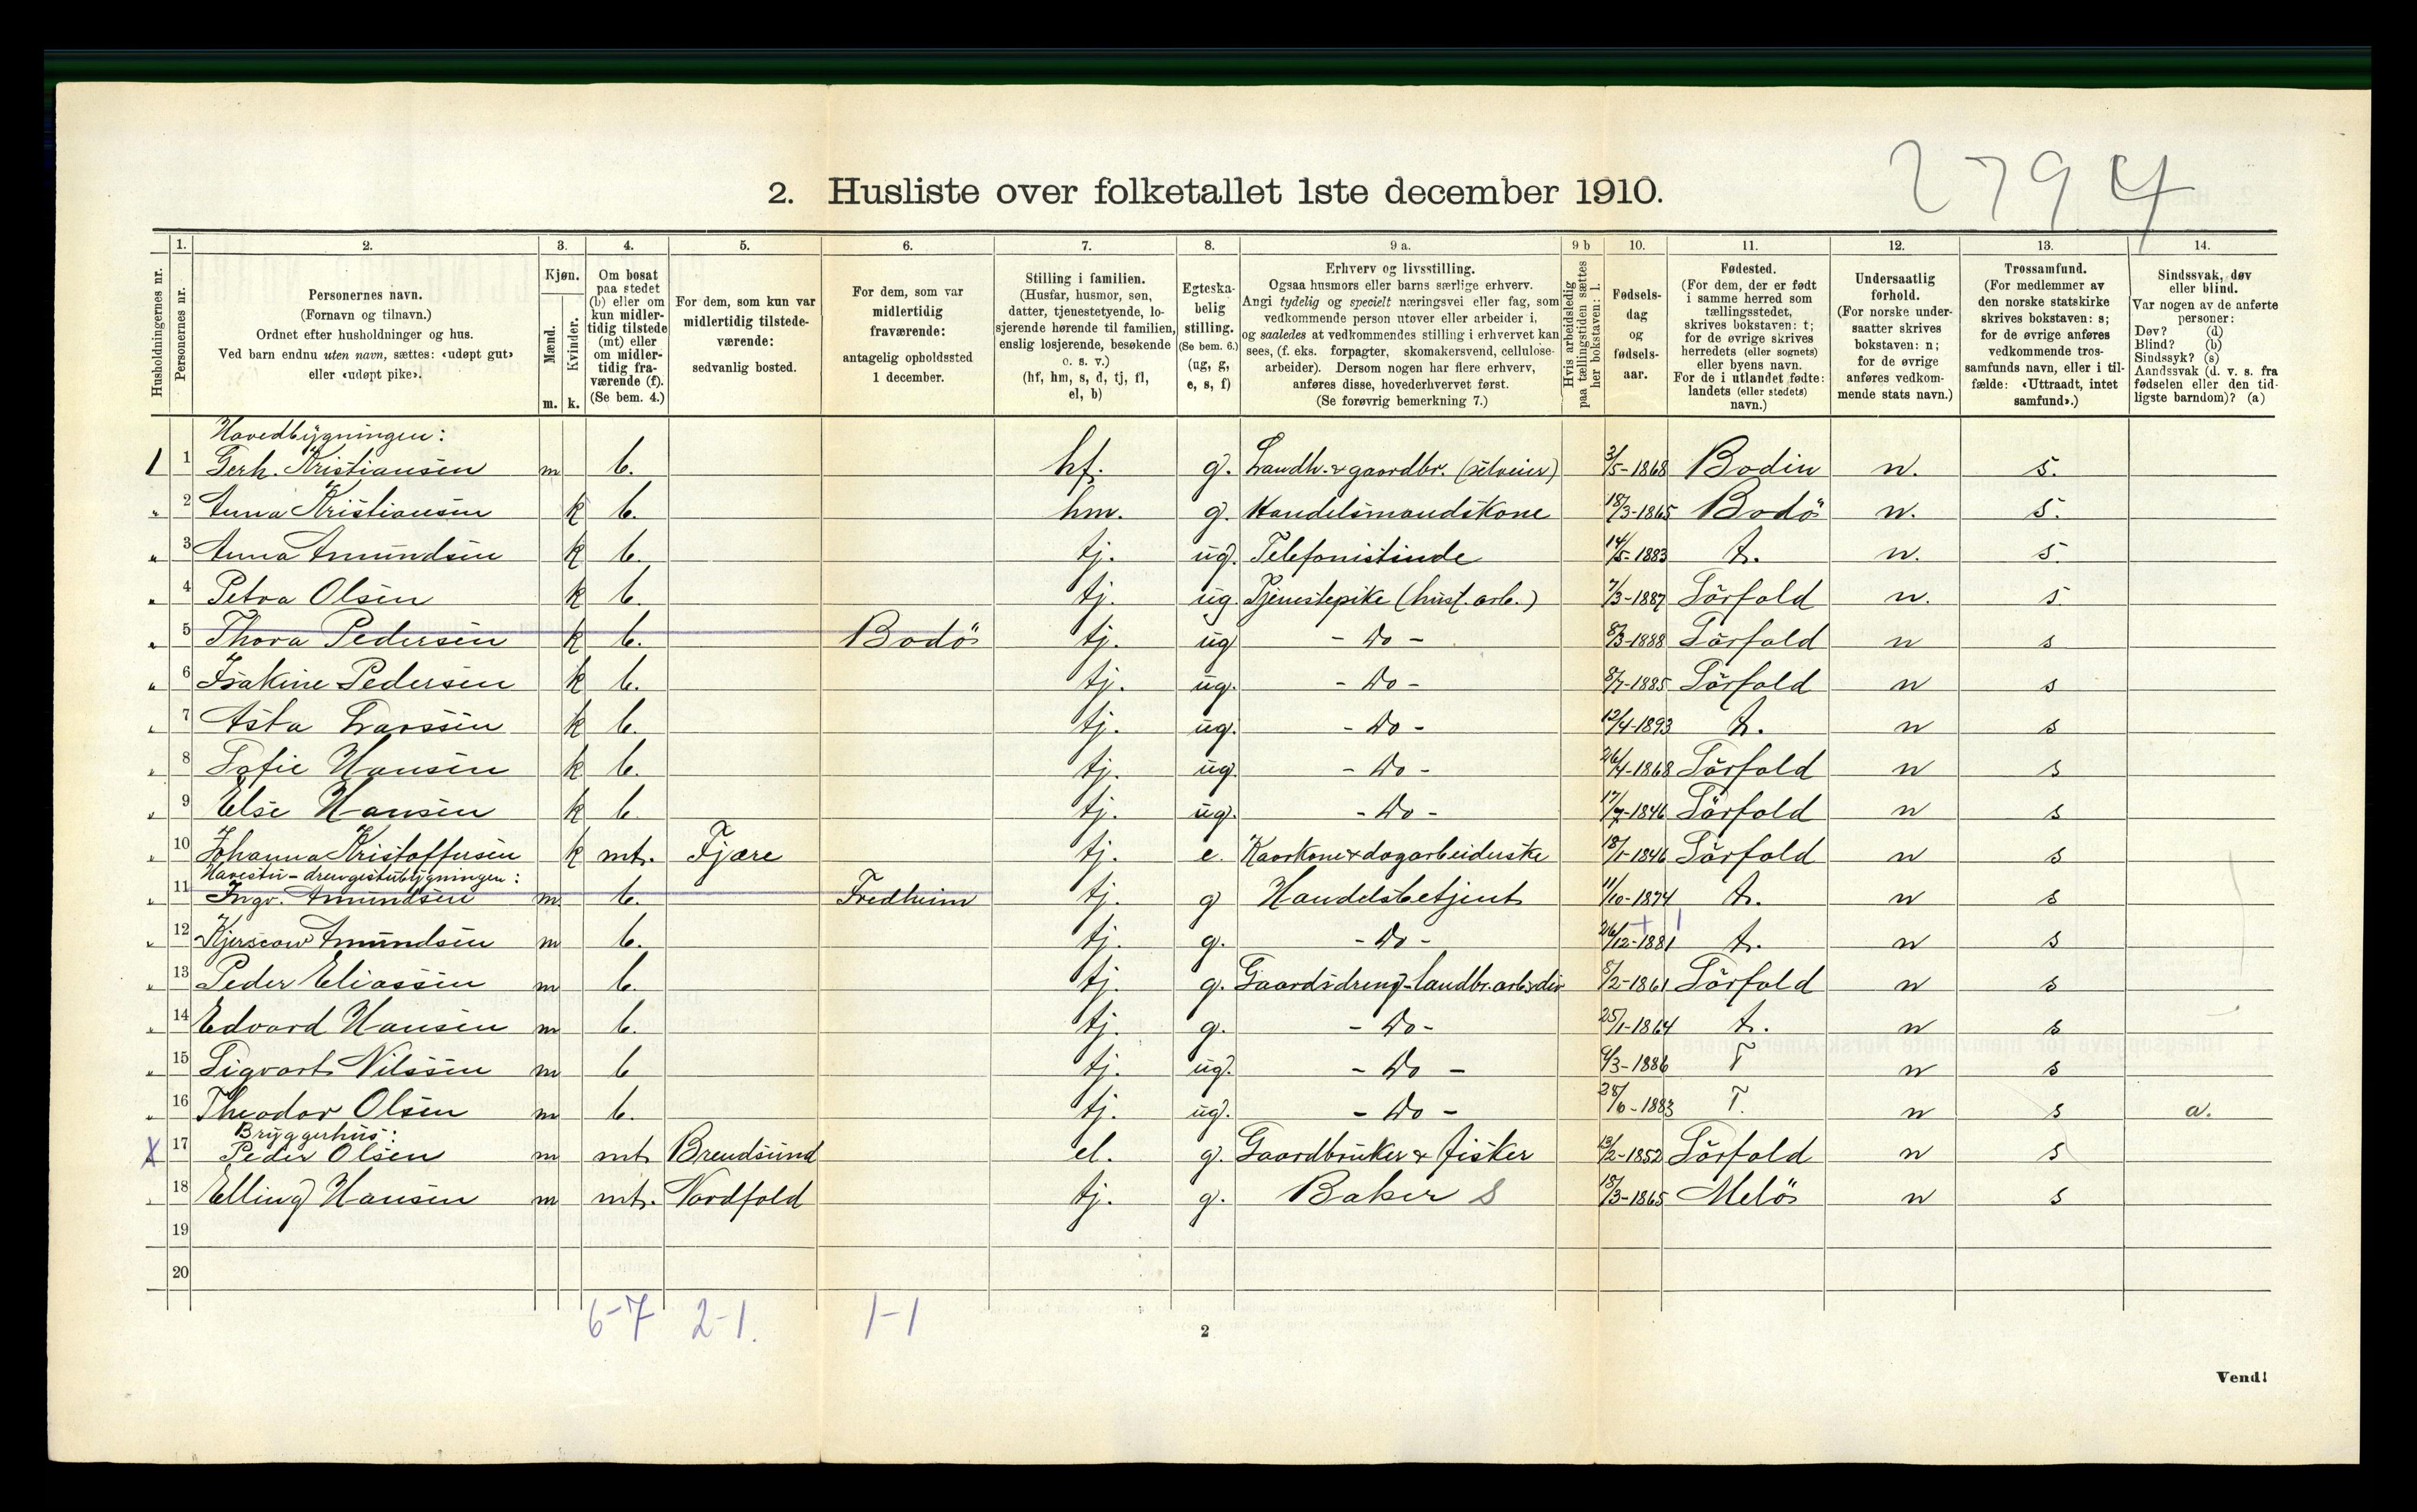 2794
2. Husliste over folketallet 1ste december 1910.
Husholdningernes nr.
1. Personernes nr.
2. Personernes navn. (Fornavn og tilnavn.) Ordnet efter husholdninger og hus. Ved barn endnu uten navn, sættes: «udøpt gut» eller «udøpt pike».
3. Kjøn. Mænd. m. Kvinder. k.
4. Om bosat paa stedet (b) eller om kun midlertidig tilstede (mt) eller om midlertidig fraværende (f). (Se bem. 4.)
5. For dem, som kun var midlertidig tilstedeværende: sedvanlig bosted.
6. For dem, som var midlertidig fraværende: antagelig opholdssted 1 december.
7. Stilling i familien. (Husfar, husmor, søn, datter, tjenestetyende, losjerende hørende til familien, enslig losjerende, besøkende o. s. v.) (hf, hm, s, d, tj, fl, el, b)
8. Egteskabelig stilling. (Se bem. 6.) (ug, g, e, s, f)
9 a. Erhverv og livsstilling. Ogsaa husmors eller barns særlige erhverv. Angi tydelig og specielt næringsvei eller fag, som vedkommende person utøver eller arbeider i, og saaledes at vedkommendes stilling i erhvervet kan sees, (f. eks. forpagter, skomakersvend, cellulosearbeider). Dersom nogen har flere erhverv, anføres disse, hovederhvervet først. (Se forøvrig bemerkning 7.)
9 b Hvis arbeidsledig paa tællingstiden sættes her bokstaven: l.
10. Fødselsdag og fødselsaar.
11. Fødested. (For dem, der er født i samme herred som tællingsstedet, skrives bokstaven: t; for de øvrige skrives herredets (eller sognets) eller byens navn. For de i utlandet fødte: landets (eller stedets) navn.)
12. Undersaatlig forhold. (For norske undersaatter skrives bokstaven: n; for de øvrige anføres vedkommende stats navn.)
13. Trossamfund. (For medlemmer av den norske statskirke skrives bokstaven: s; for de øvrige anføres vedkommende trossamfunds navn, eller i tilfælde: «Uttraadt, intet samfund».)
14. Sindssvak, døv eller blind. Var nogen av de anførte personer: Døv? (d) Blind? (b) Sindssyk? (s) Aandssvak (d. v. s. fra fødselen eller den tidligste barndom)? (a)
Hovedbygningen:
1 1 Gerh. Kristiansen m b. hf. g. Landh. & gaardbr. (selveier) 3/5-1868 Bodin n. s.
" 2 Anna Kristiansen k b. hm. g. Handelsmandskone 18/3-1865 Bodö n. s.
" 3 Anna Amundsen k b. tj. ug. Telefonistinde 14/5-1883 t. n. s
" 4 Petra Olsen k b. tj. ug. Tjenestepike (husl. arb.) 7/3-1887 Sörfold n. s
" 5 Thora Pedersen k b. Bodö tj. ug - Do - 8/3-1888 Sörfold n s
" 6 Isakine Pedersen k b. tj. ug. - Do - 8/7-1885 Sörfold n s
" 7 Asta Larssen k b. tj. ug. - Do - 12/4-1893 t. n s
" 8 Sofie Hansen k b. tj. ug. - Do - 26/4-1868 Sörfold n s
" 9 Else Hansen k b tj. ug. - Do - 17/7-1846 Sörfold n s
" 10 Johanna Kristoffersen k mt. Fjære tj. e. Kaarkone & dagarbeiderske 18/1-1846 Sörfold n s
Havestu-drengestubygningen:
" 11 Ingv. Amundsen m b. Fredheim tj. g Handelsbetjent 11/10-1874 t. n s
" 12 Kjerscow Amundsen m b. tj. g. - Do - 26/12-1881 t. n s
" 13 Peder Eliassen m b. tj. g. Gaardsdreng-landbr. arbeider 8/2-1861 Sörfold n s
" 14 Edvard Hansen m b. tj. g. - Do - 25/1-1864 t. n s
" 15 Sigvart Nilssen m b tj. ug. - Do - 9/3-1886 T n s
" 16 Theodor Olsen m b. tj. ug. - Do - 28/6-1883 T. n s a.
Bryggerhus:
X 17 Peder Olsen m mt Brendsund el. g. Gaardbruker & fisker 13/2-1852 Sörfold n s
" 18 Elling Hansen m mt. Nordfold tj. g. Baker S 18/3-1865 Melö n s
19
20
6-7 2-1. 1-1
2
Vend!